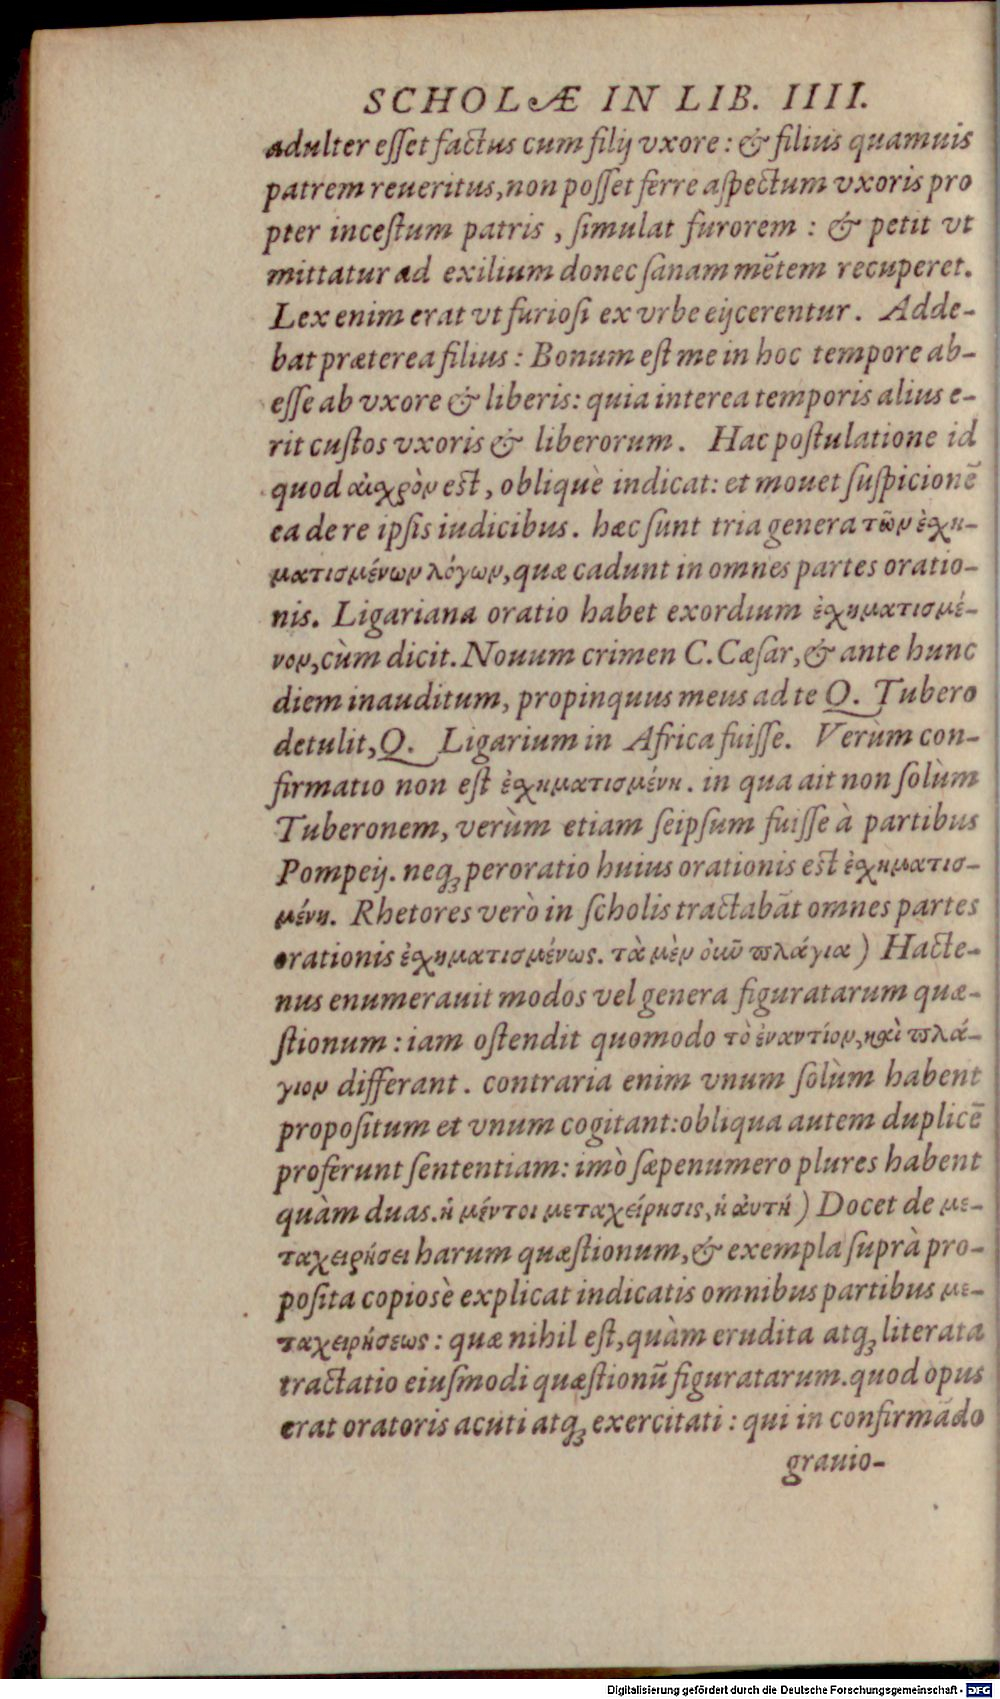 SCHOLÆ IN LIB. IIII.
adulter eſſet factus cum filij vxore: & filius quamuis
patrem reueritus, non poſſet ferre aſpectum vxoris pro
pter inceſtum patris, ſimulat furorem: & petit vt
mittatur ad exilium donec ſanam mētem recuperet.
Lex enim erat vt furioſi ex vrbe eijcerentur. Adde-
bat præterea filius: Bonum eſt me in hoc tempore ab-
eſſe ab vxore & liberis: quia interea temporis alius e-
rit cuſtos vxoris & liberorum. Hac poſtulatione id
quod αἰσχρὸν eſt, obliquè indicat: et mouet ſuſpicionē
ea de re ipſis iudicibus. hæc ſunt tria genera τῶν ἐσχη-
ματισμένων λόγων, quæ cadunt in omnes partes oratio-
nis. Ligariana oratio habet exordium ἐσχηματισμέ-
νον, cùm dicit. Nouum crimen C. Cæſar, & ante hunc
diem inauditum, propinquus meus ad te Q. Tubero
detulit, Q. Ligarium in Africa fuiſſe. Verùm con-
firmatio non eſt ἐσχηματισμένη. in qua ait non ſolùm
Tuberonem, verùm etiam ſeipſum fuiſſe à partibus
Pompeij. neq; peroratio huius orationis eſt ἐσχηματισ-
μένη. Rhetores verò in ſcholis tractabāt omnes partes
orationis ἐσχηματισμένως. τὰ μὲν οὖν πλάγια) Hacte-
nus enumerauit modos vel genera figuratarum quæ-
ſtionum: iam oſtendit quomodo τὸ ἐναντίον, καὶ πλά-
γιον differant. contraria enim vnum ſolùm habent
propoſitum et vnum cogitant: obliqua autem duplicē
proferunt ſententiam: imò ſæpenumero plures habent
quàm duas. ἡ μέντοι μεταχείρησις, ἡ αὐτή) Docet de με-
ταχειρήσει harum quæſtionum, & exempla ſuprà pro-
poſita copioſè explicat indicatis omnibus partibus με-
ταχειρήσεως: quæ nihil eſt, quàm erudita atq; literata
tractatio eiuſmodi quæſtionū figuratarum. quod opus
erat oratoris acuti atq; exercitati: qui in confirmādo
grauio-
Digitalisierung gefördert durch die Deutsche Forschungsgemeinschaft - DFG